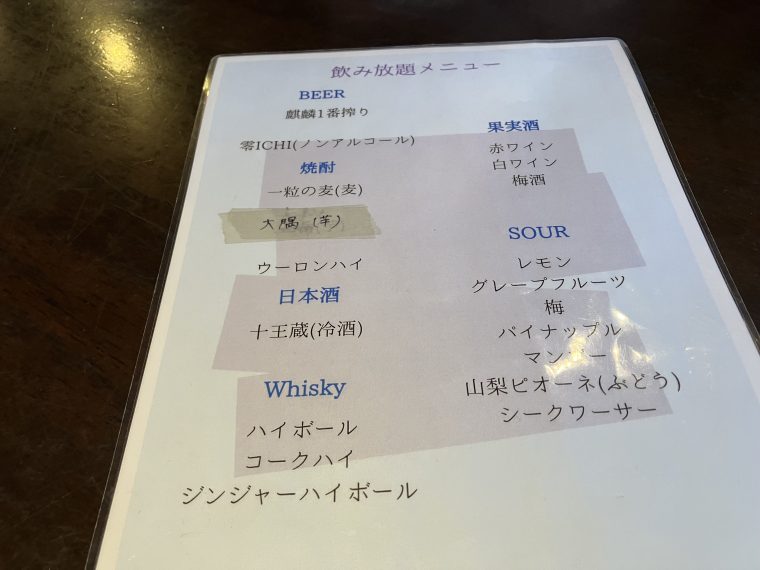 飲み放題メニュー
BEER
麒麟1番搾り
零ICHI(ノンアルコール)
焼酎
一粒の麦(麦)
大隅(芋)
ウーロンハイ
日本酒
十王蔵(冷酒)
Whisky
ハイボール
コークハイ
ジンジャーハイボール
果実酒
赤ワイン
白ワイン
梅酒
SOUR
レモン
グレープフルーツ
梅
パイナップル
マンゴー
山梨ピオーネ(ぶどう)
シークワーサー